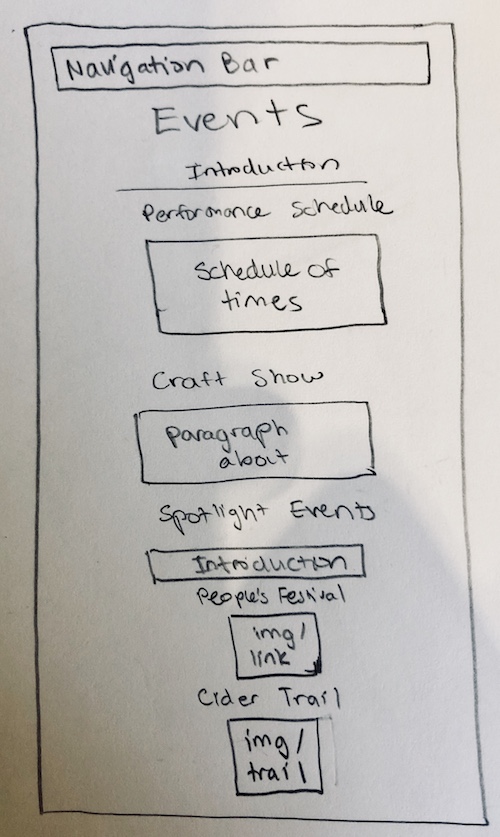 Navigation Bar
Events
Introduction
Performance Schedule
Schedule of
times
Craft Show
Paragraph
about
Spotlight Events
Introduction
People's Festival
img/
link
Cider Trail
img/
trail